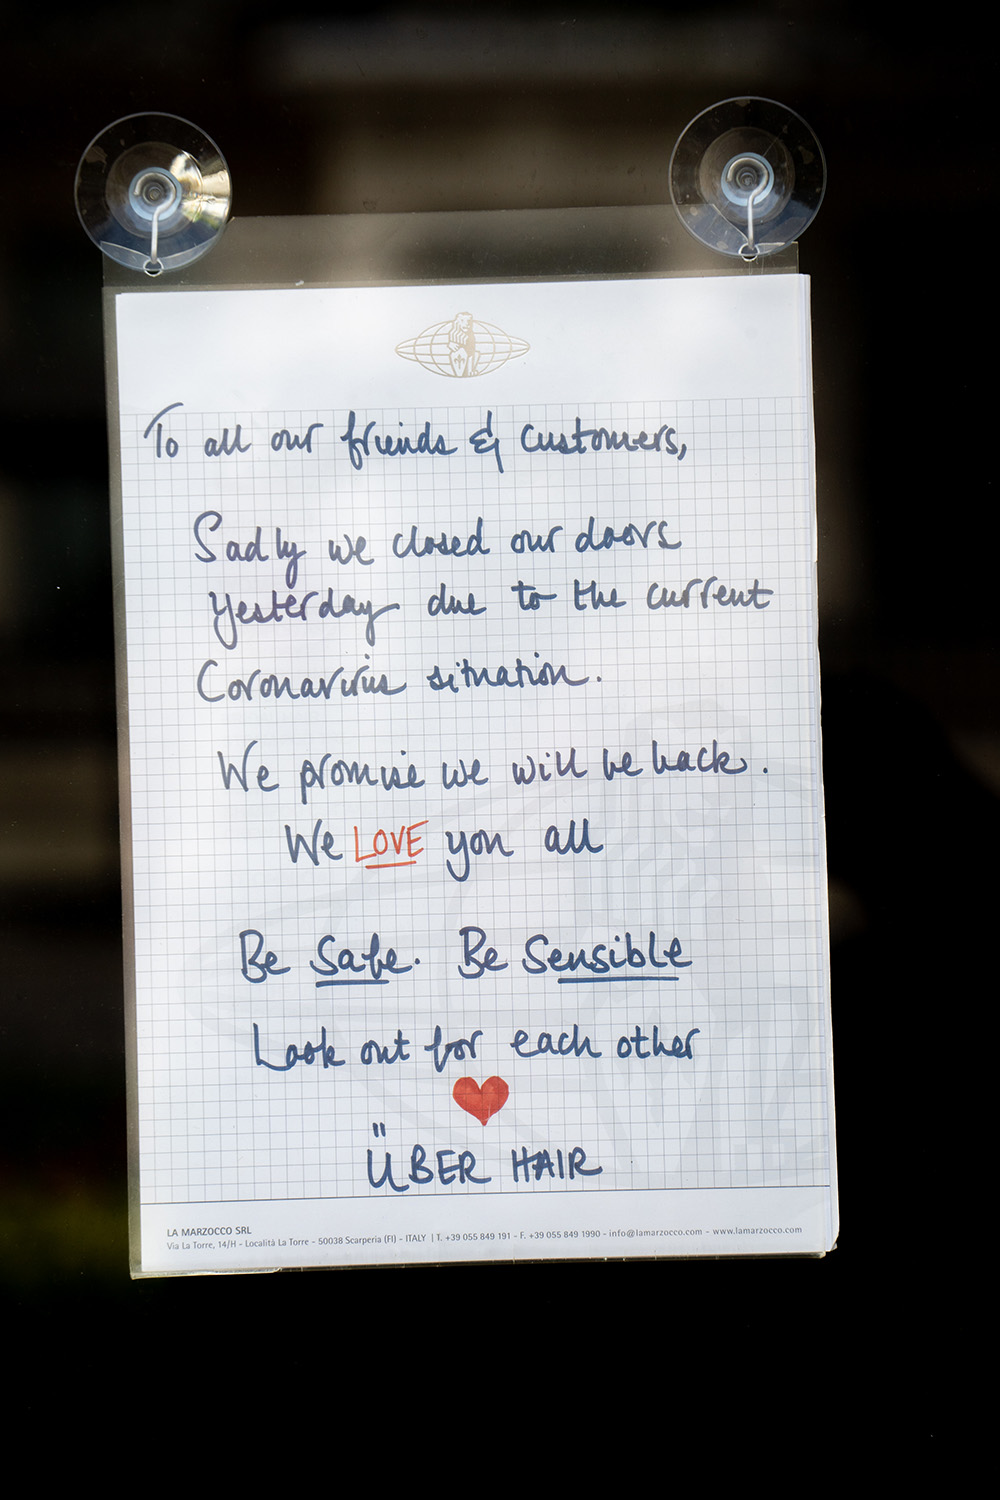 To all our friends & customers,
Sadly we closed our doors
yesterday due to the current
Coronavirus situation.
We promise we will be back.
We LOVE you all
Be Safe. Be Sensible
Look out for each other
ÜBER HAIR
LA MARZOCCO SRL
Via La Torre, 14/H - Località La Torre - 50038 Scarperia (FI) - ITALY | T. +39 055 849 191 - F. +39 055 849 1990 - info@lamarzocco.com - www.lamarzocco.com